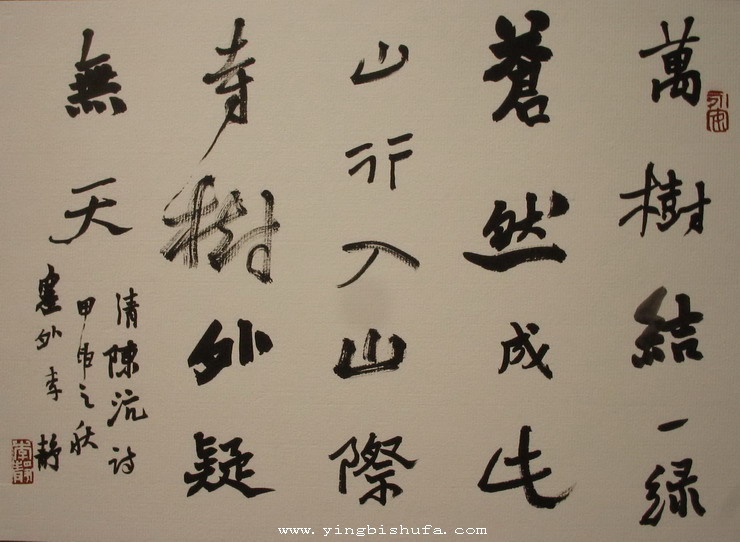 萬樹結一緑
蒼然成此
山行入山際
寺樹外疑
無天
清陳沆詩
甲申之秋
塞外李静
www.yingbishufa.com